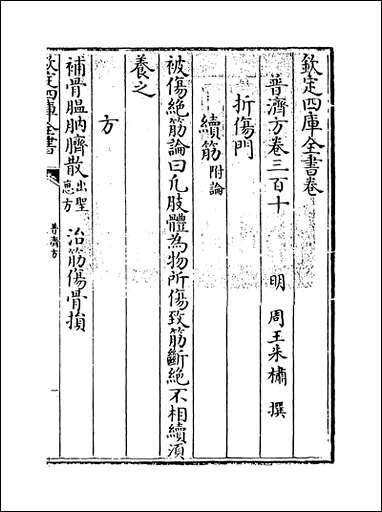 欽定四庫全書卷
普濟方卷三百十
明 周王朱橚 撰
折傷門
續筋附論
被傷絶筋論曰凡肢體為物所傷致筋斷絶不相續須
養之
方
補骨膃肭臍散出聖惠方 治筋傷骨損
欽定四庫全書
普濟方
一